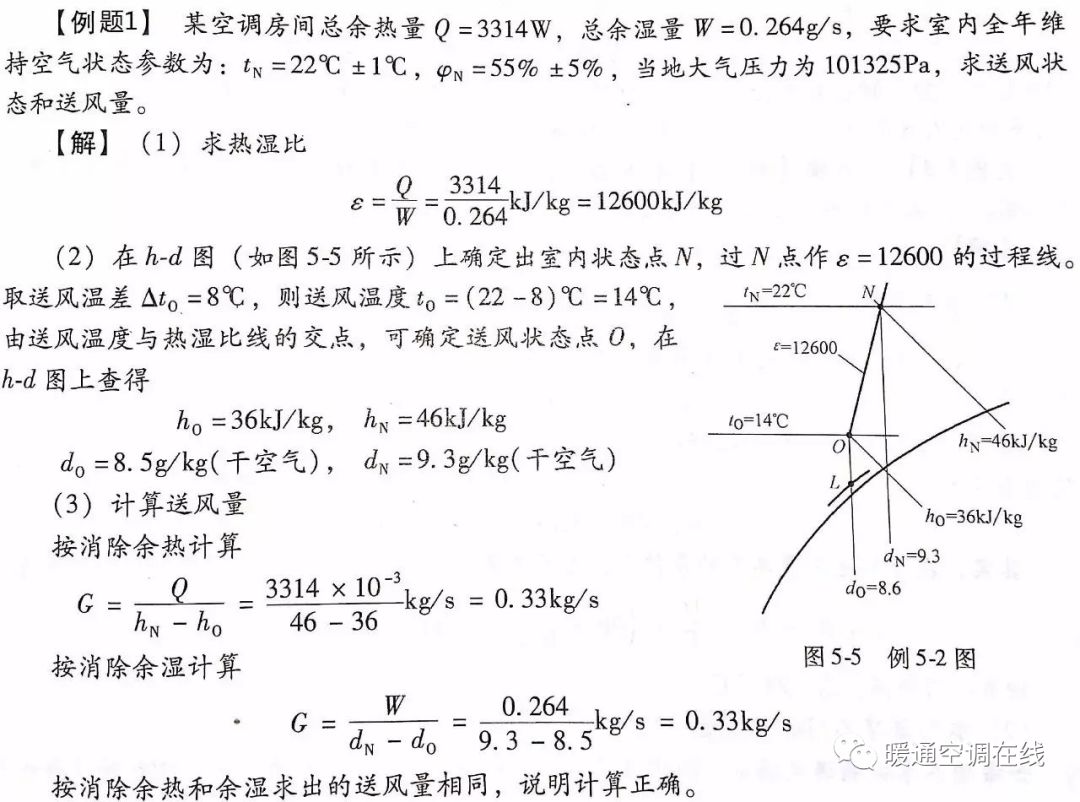 【例题1】 某空调房间总余热量 Q=3314W，总余湿量 W=0.264g/s，要求室内全年维
持空气状态参数为：tN=22℃±1℃，φN=55%±5%，当地大气压力为101325Pa，求送风状
态和送风量。
【解】（1）求热湿比
ε = Q/W = 3314/0.264 kJ/kg = 12600kJ/kg
（2）在 h-d 图（如图5-5所示）上确定出室内状态点 N，过 N 点作 ε=12600 的过程线。
取送风温差 ΔtO=8℃，则送风温度 tO=(22-8)℃=14℃，
由送风温度与热湿比线的交点，可确定送风状态点 O，在
h-d 图上查得
hO=36kJ/kg， hN=46kJ/kg
dO=8.5g/kg(干空气)， dN=9.3g/kg(干空气)
（3）计算送风量
按消除余热计算
G = Q/(hN - hO) = (3314 × 10⁻³)/(46 - 36) kg/s = 0.33kg/s
按消除余湿计算
G = W/(dN - dO) = 0.264/(9.3 - 8.5) kg/s = 0.33kg/s
按消除余热和余湿求出的送风量相同，说明计算正确。
tN=22℃
N
ε=12600
tO=14℃
O
L
hN=46kJ/kg
hO=36kJ/kg
dN=9.3
dO=8.6
图 5-5 例 5-2 图
暖通空调在线